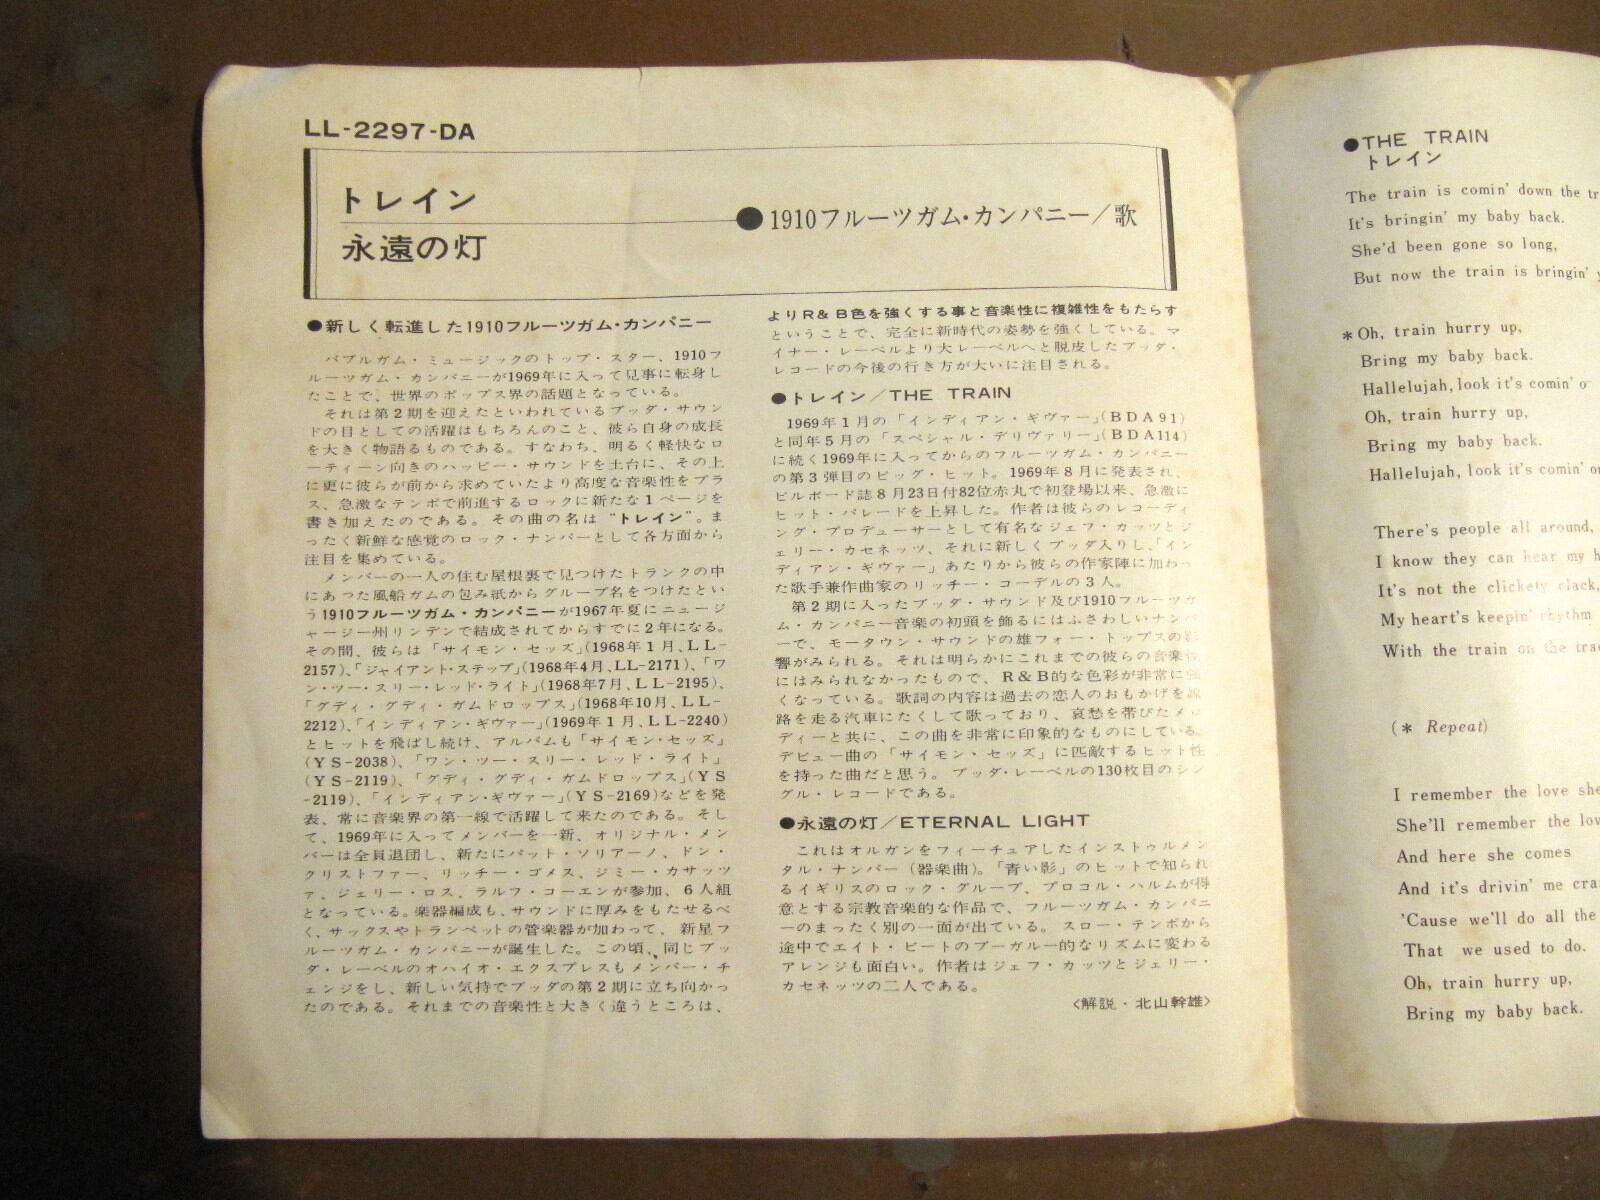 LL-2297-DA
トレイン
永遠の灯
●1910フルーツガム・カンパニー/歌
●新しく転進した1910フルーツガム・カンパニー
バブルガム・ミュージックのトップ・スター、1910フ
ルーツガム・カンパニーが1969年に入って見事に転身し
たことで、世界のポップス界の話題となっている。
それは第2期を迎えたといわれているブッダ・サウン
ドの目としての活躍はもちろんのこと、彼ら自身の成長
を大きく物語るものである。すなわち、明るく軽快なロ
ーティーン向きのハッピー・サウンドを土台に、その上
に更に彼らが前から求めていたより高度な音楽性をプラ
ス、急激なテンポで前進するロックに新たな1ページを
書き加えたのである。その曲の名は"トレイン"。ま
ったく新鮮な感覚のロック・ナンバーとして各方面から
注目を集めている。
メンバーの一人の住む屋根裏で見つけたトランクの中
にあった風船ガムの包み紙からグループ名をつけたとい
う1910フルーツガム・カンパニーが1967年夏にニュージ
ャージー州リンデンで結成されてからすでに2年になる。
その間、彼らは「サイモン・セッズ」(1968年1月、LL-
2157)、「ジャイアント・ステップ」(1968年4月、LL-2171)、「ワ
ン・ツー・スリー・レッド・ライト」(1968年7月、LL-2195)、
「グディ・グディ・ガムドロップス」(1968年10月、LL-
2212)、「インディアン・ギヴァー」(1969年1月、LL-2240)
とヒットを飛ばし続け、アルバムも「サイモン・セッズ」
(YS-2038)、「ワン・ツー・スリー・レッド・ライト」
(YS-2119)、「グディ・グディ・ガムドロップス」(YS
-2119)、「インディアン・ギヴァー」(YS-2169)などを発
表、常に音楽界の第一線で活躍して来たのである。そし
て、1969年に入ってメンバーを一新、オリジナル・メン
バーは全員退団し、新たにパット・ソリアーノ、ドン・
クリストファー、リッチー・ゴメス、ジミー・カサッツ
ァ、ジェリー・ロス、ラルフ・コーエンが参加、6人組
となっている。楽器編成も、サウンドに厚みをもたせるべ
く、サックスやトランペットの管楽器が加わって、新星フ
ルーツガム・カンパニーが誕生した。この頃、同じブッ
ダ・レーベルのオハイオ・エクスプレスもメンバー・チ
ェンジをし、新しい気持でブッダの第2期に立ち向かっ
たのである。それまでの音楽性と大きく違うところは、
よりR&B色を強くする事と音楽性に複雑性をもたらす
ということで、完全に新時代の姿勢を強くしている。マ
イナー・レーベルより大レーベルへと脱皮したブッダ・
レコードの今後の行き方が大いに注目される。
●トレイン/THE TRAIN
1969年1月の「インディアン・ギヴァー」(BDA91)
と同年5月の「スペシャル・デリヴァリー」(BDA114)
に続く1969年に入ってからのフルーツガム・カンパニー
の第3弾目のビッグ・ヒット。1969年8月に発表され、
ビルボード誌8月23日付82位赤丸で初登場以来、急激に
ヒット・パレードを上昇した。作者は彼らのレコーディ
ング・プロデューサーとして有名なジェフ・カッツとジ
ェリー・カセネッツ、それに新しくブッダ入りし、「イン
ディアン・ギヴァー」あたりから彼らの作家陣に加わっ
た歌手兼作曲家のリッチー・コーデルの3人。
第2期に入ったブッダ・サウンド及び1910フルーツガ
ム・カンパニー音楽の初頭を飾るにはふさわしいナンバ
ーで、モータウン・サウンドの雄フォー・トップスの影
響がみられる。それは明らかにこれまでの彼らの音楽性
にはみられなかったもので、R&B的な色彩が非常に強
くなっている。歌詞の内容は過去の恋人のおもかげを線
路を走る汽車にたくして歌っており、哀愁を帯びたメロ
ディーと共に、この曲を非常に印象的なものにしている。
デビュー曲の「サイモン・セッズ」に匹敵するヒット性
を持った曲だと思う。ブッダ・レーベルの130枚目のシン
グル・レコードである。
●永遠の灯/ETERNAL LIGHT
これはオルガンをフィーチュアしたインストゥルメン
タル・ナンバー(器楽曲)。「青い影」のヒットで知られ
るイギリスのロック・グループ、プロコル・ハルムが得
意とする宗教音楽的な作品で、フルーツガム・カンパニ
ーのまったく別の一面が出ている。スロー・テンポから
途中でエイト・ビートのブーガルー的なリズムに変わる
アレンジも面白い。作者はジェフ・カッツとジェリー・
カセネッツの二人である。
<解説・北山幹雄>
●THE TRAIN
トレイン
The train is comin' down the tr
It's bringin' my baby back.
She'd been gone so long,
But now the train is bringin'
*Oh, train hurry up,
Bring my baby back.
Hallelujah, look it's comin' o
Oh, train hurry up,
Bring my baby back.
Hallelujah, look it's comin' o
There's people all around,
I know they can hear my h
It's not the clickety clack,
My heart's keepin' rhythm
With the train on the tra
(* Repeat)
I remember the love she
She'll remember the lov
And here she comes
And it's drivin' me cra
'Cause we'll do all the
That we used to do.
Oh, train hurry up,
Bring my baby back.